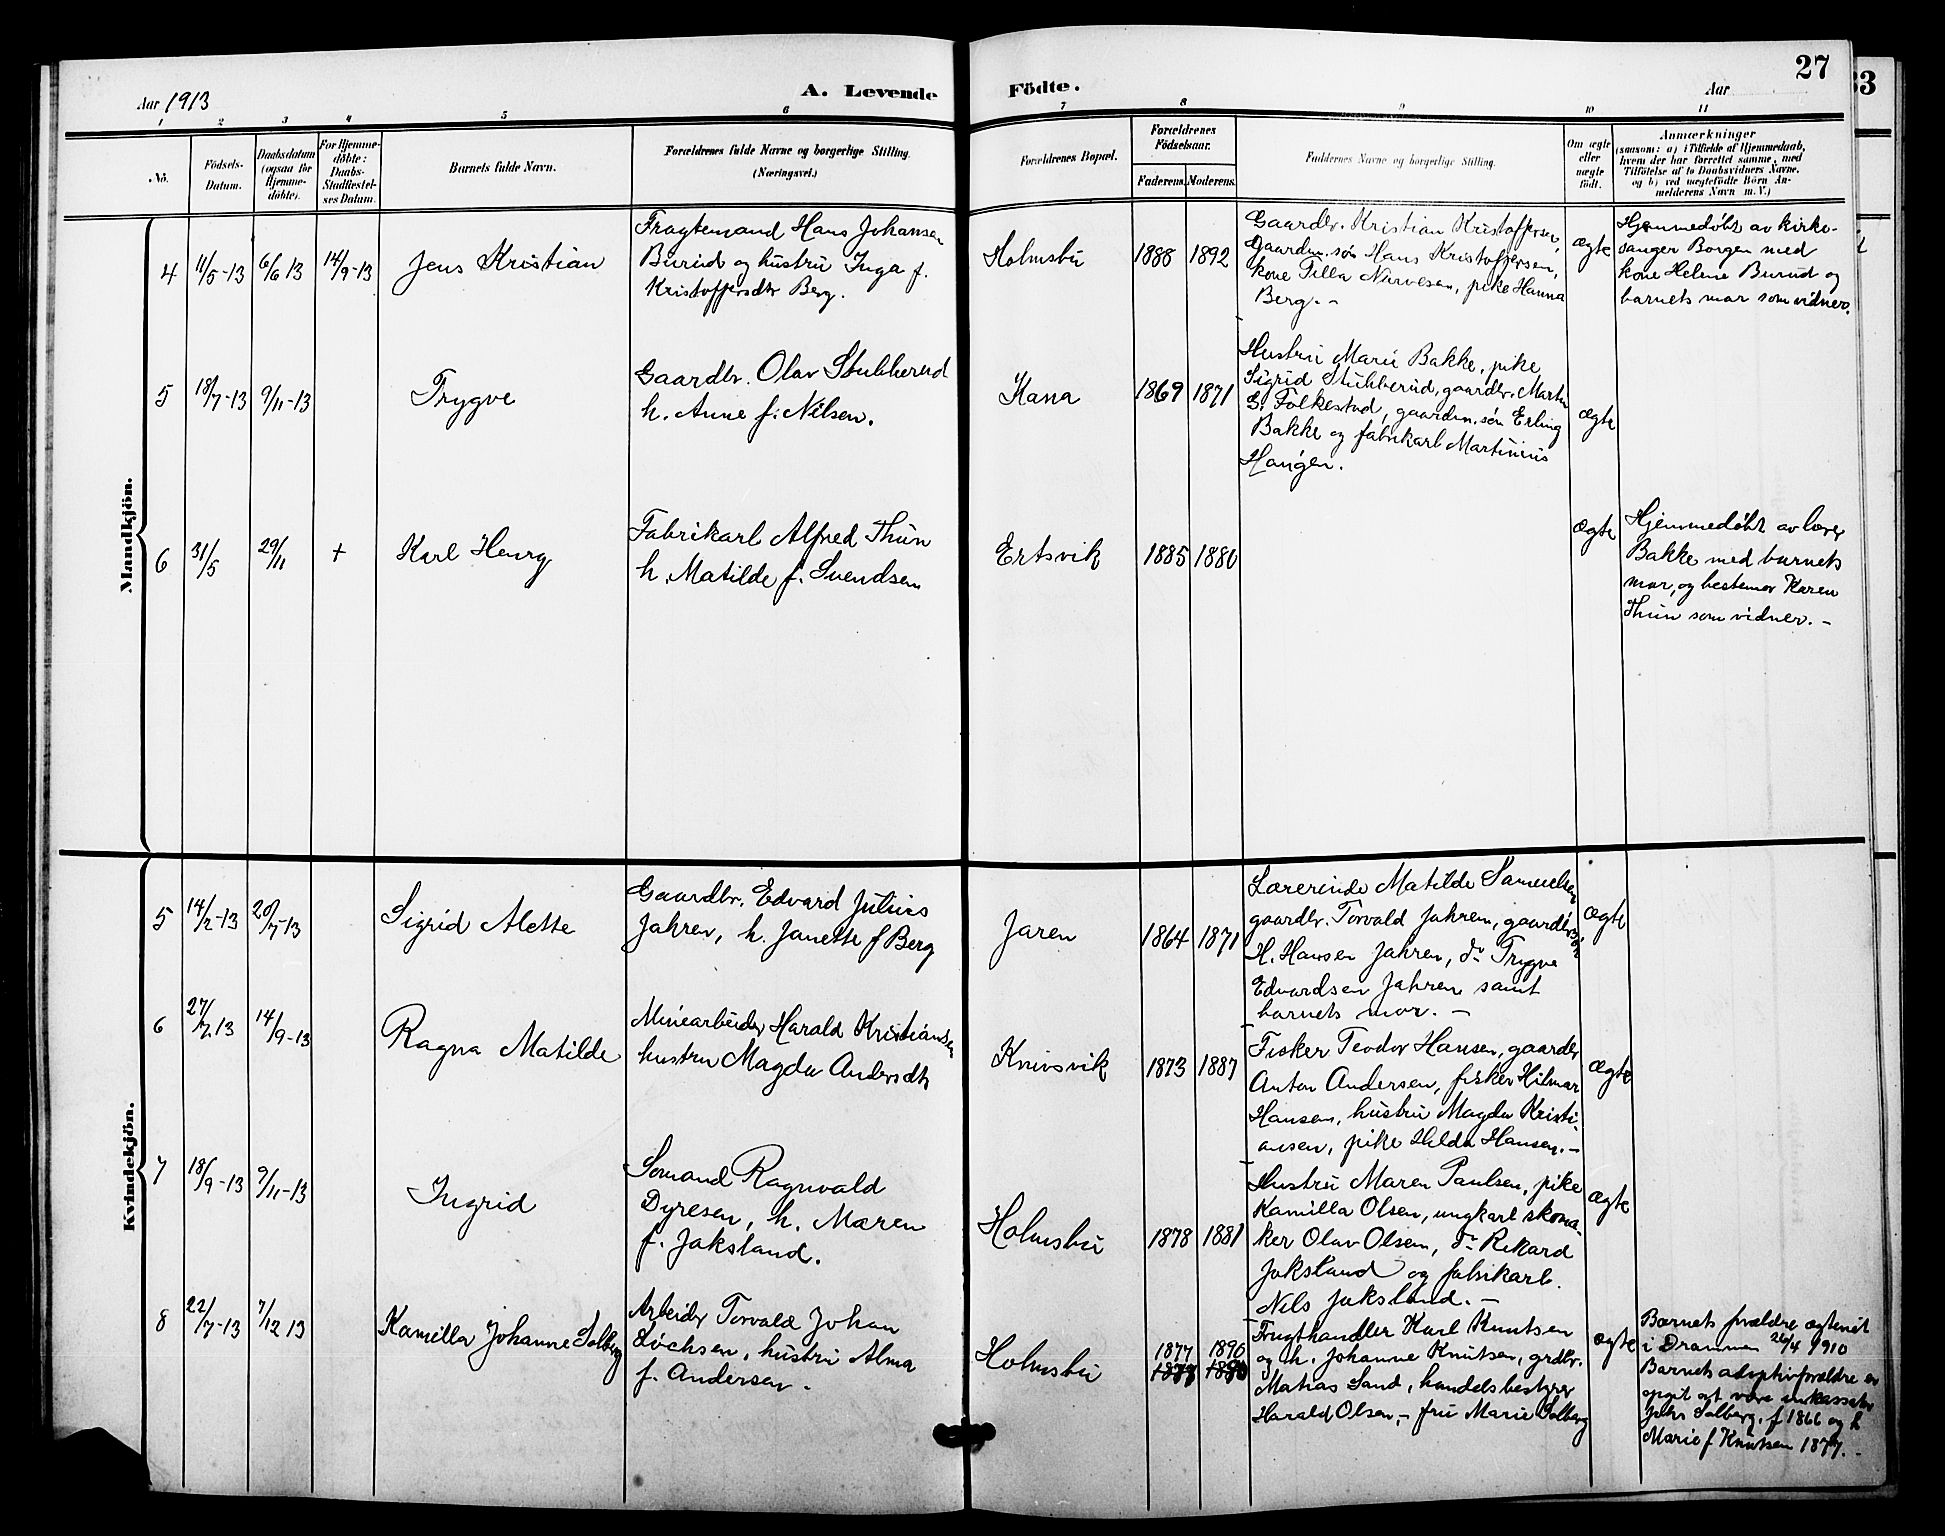 27
33
Aar 1913
A. Levende
Födte.
Aar
1 2 3 4 5 6 7 8 9 10 11
No.
Födsels-
Datum.
Daabsdatum
(ogsaa for
Hjemme-
døbte).
For Hjemme-
døbte:
Daabs-
Stadfæstel-
ses Datum.
Barnets fulde Navn.
Forældrenes fulde Navne og borgerlige Stilling.
(Næringsvei.)
Forældrenes Bopæl.
Forældrenes
Födselsaar.
Faderens. Moderens.
Faddernes Navne og borgerlige Stilling.
Om ægte
eller
uægte
født.
Anmærkninger
(saasom: a) i Tilfælde af Hjemmedaab,
hvem der har forrettet samme, med
Tilföielse af to Daabsvidners Navne.
og b) ved uægtefödte Börn An-
melderens Navn m. V.)
Mandkjön.
4
11/5-13
6/6 13
14/9-13
Jens Kristian
Fragtemand Hans Johansen
Burud og hustru Inga f.
Kristoffersdtr Berg.
Holmsbu
1888
1892
Gaardbr. Kristian Kristoffersen,
gaardm. søn Hans Kristoffersen,
kone Tilla Narvesen, pike Hanna
Berg. -
ægte
Hjemmedøbt av kirke-
sanger Borgen med
kone Helene Burud og
barnets mor som vidner.
5
18/7-13
9/11-13
Trygve
Gaardbr. Olav Stubberud
h. Anne f. Nilsen.
Kana
1869
1871
Hustru Marie Bakke, pike
Sigrid Stubberud, gaardbr. Martin
G. Folkestad, gaardm. søn Erling
Bakke og fabrikarb Martinius
Haugen.
ægte
6
31/5
29/11
+
Karl Henry
Fabrikarb Alfred Thun
h. Matilde f. Svendsen
Ertsvik
1885
1880
ægte
Hjemmedøbt av lærer
Bakke med barnets
mor, og bestemor Karen
Thun som vidner. -
Kvindekjön.
5
14/2-13
20/7-13
Sigrid Alette
Gaardbr. Edvard Julius
Jahren, h. Janette f Berg
Jaren
1864
1871
Lærerinde Matilde Samuelsen
gaardbr. Torvald Jahren, gaardbr søn
H. Hansen Jahren, do Trygve
Edvardsen Jahren samt
barnets mor. -
ægte
6
27/7 13
14/9-13
Ragna Matilde
Minearbeider Harald Kristiansen
hustru Magda Andersdtr
Knivsvik
1873
1887
Fisker Teodor Hansen, gaardbr
Anton Andersen, fisker Hilmar
Hansen, hustru Magda Kristi-
ansen, pike Hilda Hansen. -
ægte
7
18/9-13
9/11-13
Ingrid
Sømand Ragnvald
Dyresen, h. Maren
f. Jaksland.
Holmsbu
1878
1881
Hustru Maren Paulsen, pike
Kamilla Olsen, ungkarl skoma-
ker Olav Olsen, do Rikard
Jaksland og fabrikarb.
Nils Jaksland. -
ægte
8
22/7-13
7/12 13
Kamilla Johanne Solberg
Arbeider Torvald Johan
Løchsen, hustru Alma
f. Andersen.
Holmsbu
1877
1890
Frugthandler Karl Knutsen
og h. Johanne Knutsen, grdbr.
Matias Sand, handelsbestyrer
Harald Olsen, - fru Marie Solberg
ægte
Barnets forældre egteviet
i Drammen 26/4 1910
Barnets adoptivforældre er
opgit at være inkassator
Johs Solberg, f 1866 og h
Marie f Knutsen 1877. -